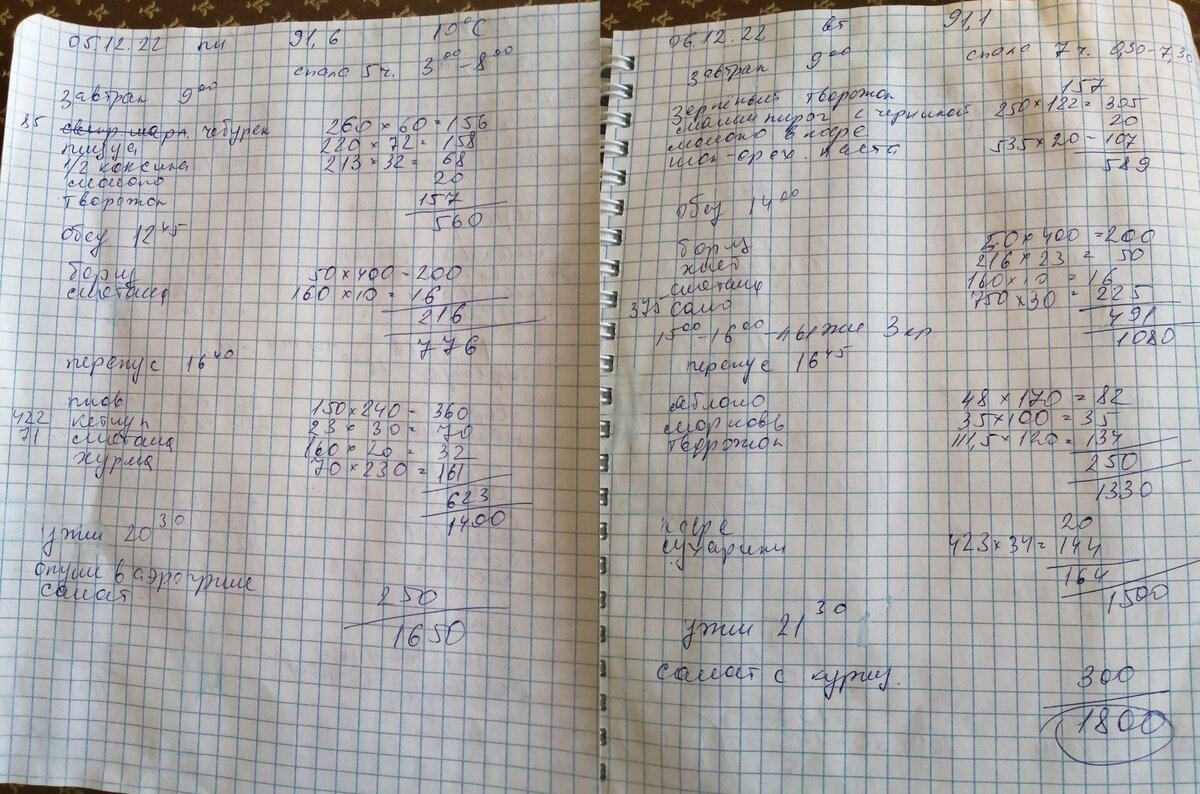 05.12.22 пн 91,6 10°С
спала 5 ч. 3⁰⁰-8⁰⁰
завтрак 9⁰⁰
85 чебурек 260×60=156
пицца 220×72=158
1/2 кексика 213×32=68
молоко 20
творожок 157
560
обед 12⁴⁵
борщ 50×400=200
сметана 160×10=16
216
776
перекус 16⁴⁰
плов 150×240=360
422 кетчуп 23×30=70
71 сметана 160×20=32
хурма 70×230=161
623
1400
ужин 20³⁰
окуни в аэрогриле
салат 250
1650
06.12.22 вт 91,1
спала 7 ч. 0,30-7,30
завтрак 9⁰⁰
зернёный творожок 157
пирог с черникой 250×122=305
молоко в кофе 20
шок-орех. паста 535×20=107
589
обед 14⁰⁰
борщ 50×400=200
хлеб 216×23=50
сметана 160×10=16
375 сало 750×30=225
491
1080
15⁰⁰-16⁰⁰-лыжи 3 кр
перекус 16⁴⁵
яблоко 48×170=82
морковь 35×100=35
творожок 111,5×120=134
250
1330
кофе 20
сухарики 423×34=144
164
1500
ужин 21³⁰
салат с куриц. 300
1800